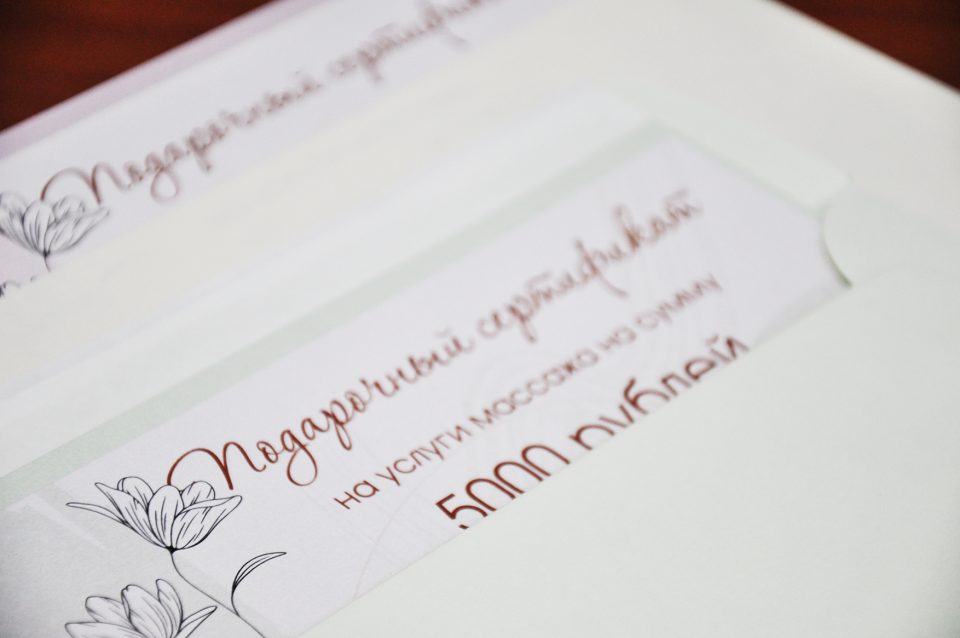 Подарочный сертифик
Подарочный сертификат
на услуги массажа на сумму
5000 рублей